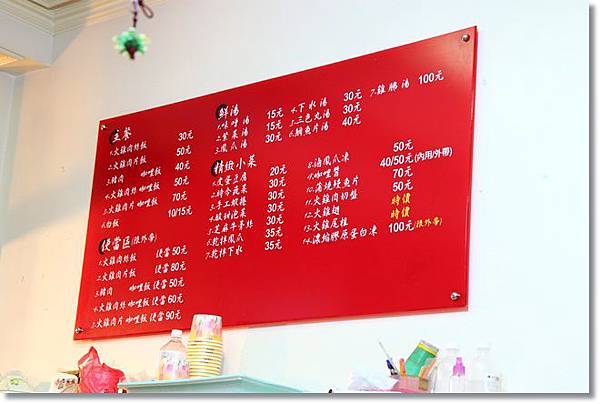 主餐
1.火雞肉絲飯 30元
2.火雞肉片飯 50元
3.豬肉 咖哩飯 40元
4.火雞肉絲 咖哩飯 50元
5.火雞肉片 咖哩飯 70元
6.白飯 10/15元
便當區(限外帶)
1.火雞肉絲飯 便當50元
2.火雞肉片飯 便當80元
3.豬肉 咖哩飯 便當50元
4.火雞肉絲 咖哩飯 便當60元
5.火雞肉片 咖哩飯 便當90元
鮮湯
1.味噌湯 15元
2.紫菜湯 15元
3.鳳爪湯 30元
4.下水湯 30元
5.三色丸湯 30元
6.鯛魚片湯 40元
7.雞腸湯 100元
精緻小菜
1.皮蛋豆腐 20元
2.時令蔬菜 30元
3.手工蝦捲 30元
4.酸甜泡菜 30元
5.芝麻牛蒡絲 35元
6.乾拌鳳爪 35元
7.乾拌下水 35元
8.滷鳳爪凍 50元
9.咖哩醬 40/50元(內用/外帶)
10.蒲燒鰻魚片 70元
11.火雞肉切盤 50元
12.火雞翅 時價
13.火雞尾椎 時價
14.濃縮膠原蛋白凍 100元(限外帶)